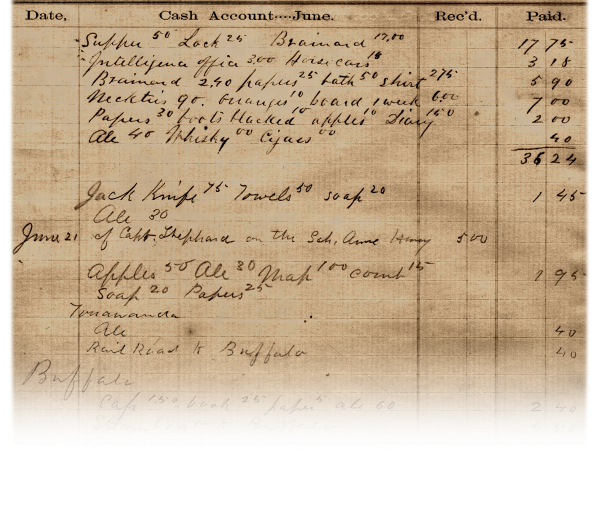 Date, Cash Account····June. Rec'd. Paid.
Supper 50 Lock 25 Brainard 17,00 17 75
Intelligence office 3.00 Horsecars 18 3 18
Brainard 2,40 papers 25 bath 50 shirt 275 5 90
Neckties 90. Oranges 10 board 1 week 6.00 7 00
Papers 30 boots blacked 10 apples 10 Diary 150 2 00
Ale 40 Whisky 00 Cigars 00 40
36 24
Jack Knife 75 Towels 50 soap 20 1 45
Ale 30
June 21 of Capt. Shephard on the Sch, Anne Henry 5 00
Apples 50 Ale 30 Map 100 comb 15 1 95
Soap 20 Papers 25
Tonawanda
Ale 40
Rail Road to Buffalo 40
Buffalo
Cap 150 book 25 paper 5 ale 60 2 40